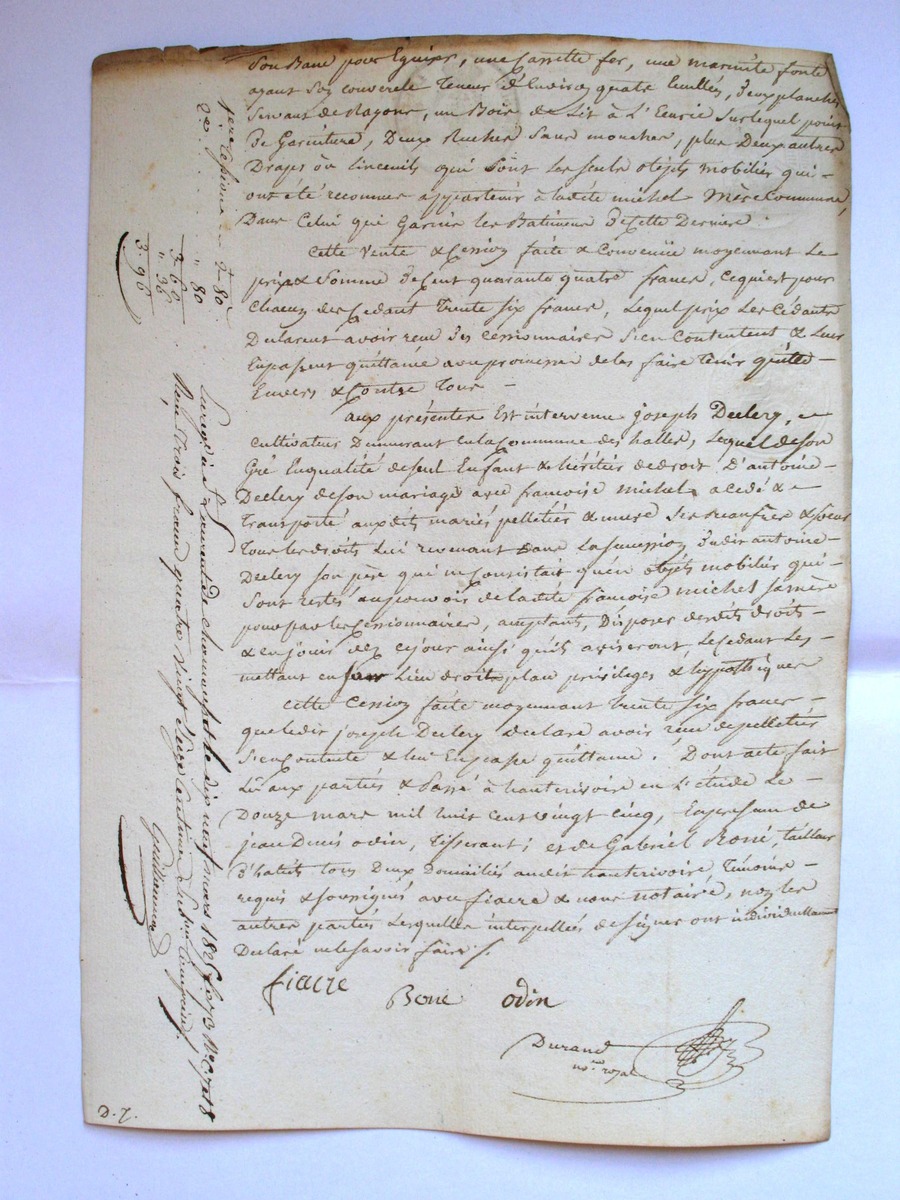 Son Banc pour Equier, une Cassette fer, une marmite fonte
ayant son couvercle Teneur d'Environ quatre Ecuellées, Deux planches
Servant de Rayons, un Bois de Lit à L'Ecurie Surlequel point
De Garniture, Deux Ruches Sans mouches, plus Deux autres
Draps ou Linceuils qui Sont Les Seuls objets mobiliés qui
ont été reconnus appartenir à ladite michel Mère Commune,
Dans Celui qui Garnis les Batimens De Cette Derniere.
Cette Vente & Cession faite & Convenüe moyennant Le
prix & Somme de Cent quarante quatre francs, Cequi est pour
Chacun des Cedant Trente Six francs, Lequel prix Les Cédants
Declarent avoir reçu des Cessionnaires S'en Contentent & Leur
En passent quittance avec promesse de les faire Tenir quitte
Envers & Contre Tous
aux présentes Est intervenu joseph Declery,
cultivateur Demeurant en la Commune des halles, Lequel de son
Gré En qualité de seul Enfant & héritier de droit D'antoine
Declery de son mariage avec françoise michel, a cédé &
Transporté auxdits mariés pelletiés & mure Ses Beaufrère & soeur
Tous les droits Lui revenant Dans La Succession Dudit antoine
Declery Son père qui ne Consistait qu'en objets mobiliés qui
Sont restés au pouvoir de ladite françoise michel Sa mère
pour par les Cessionnaires, acceptants, Disposer desdits droits
& en jouir dez ce jour ainsi qu'ils aviseront, Le Cedant Les
mettant en Son Lieu droit, place privileges & hypothèques
Cette Cession faite moyennant trente Six francs
que ledit joseph Declery declare avoir reçu de pelletiés
S'en Contente & lui En passe quittance. Dont acte fait
Lu aux partiés & Passé à hauterivoire en L'etude Le
Douze mars mil huit cent vingt cinq, En presence de
jean Denis odin, Tisserant; et de Gabriel Boné, tailleur
D'habits tous Deux Domiciliés audit hauterivoire, Témoins
requis & soussignés avec fiacre & nous notaire, non les
autres partiés Lesquelles interpellées de signer ont individuellement
Declaré ne le Savoir faire /.
fiacre
Boné odin
Durand
no.re royal
80
80
3 60
" 36
3. 96
Enregé à St Laurent de chamousset le dix neuf mars 1825 fo 73 Ro C 7 et 8
Reçu trois francs quatre vingt Seize Centimes Subon Compris /.
D. 7.